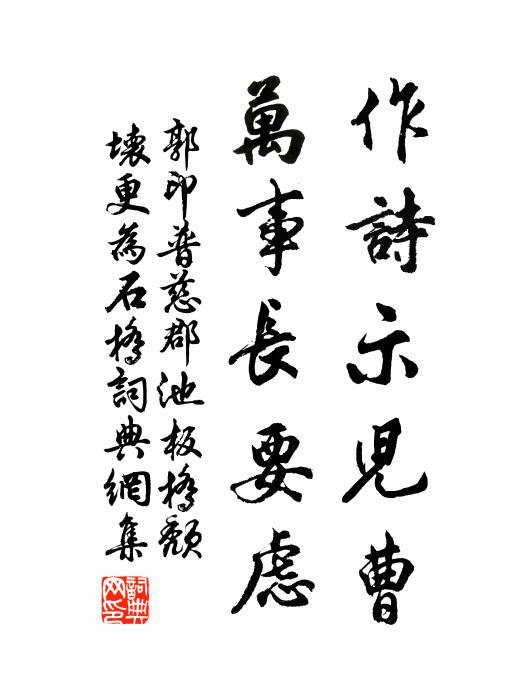 作詩示児曹
萬事長要慮
郭印普慈郡池板橋頹
壞更為石橋詞典網集
詞典网印